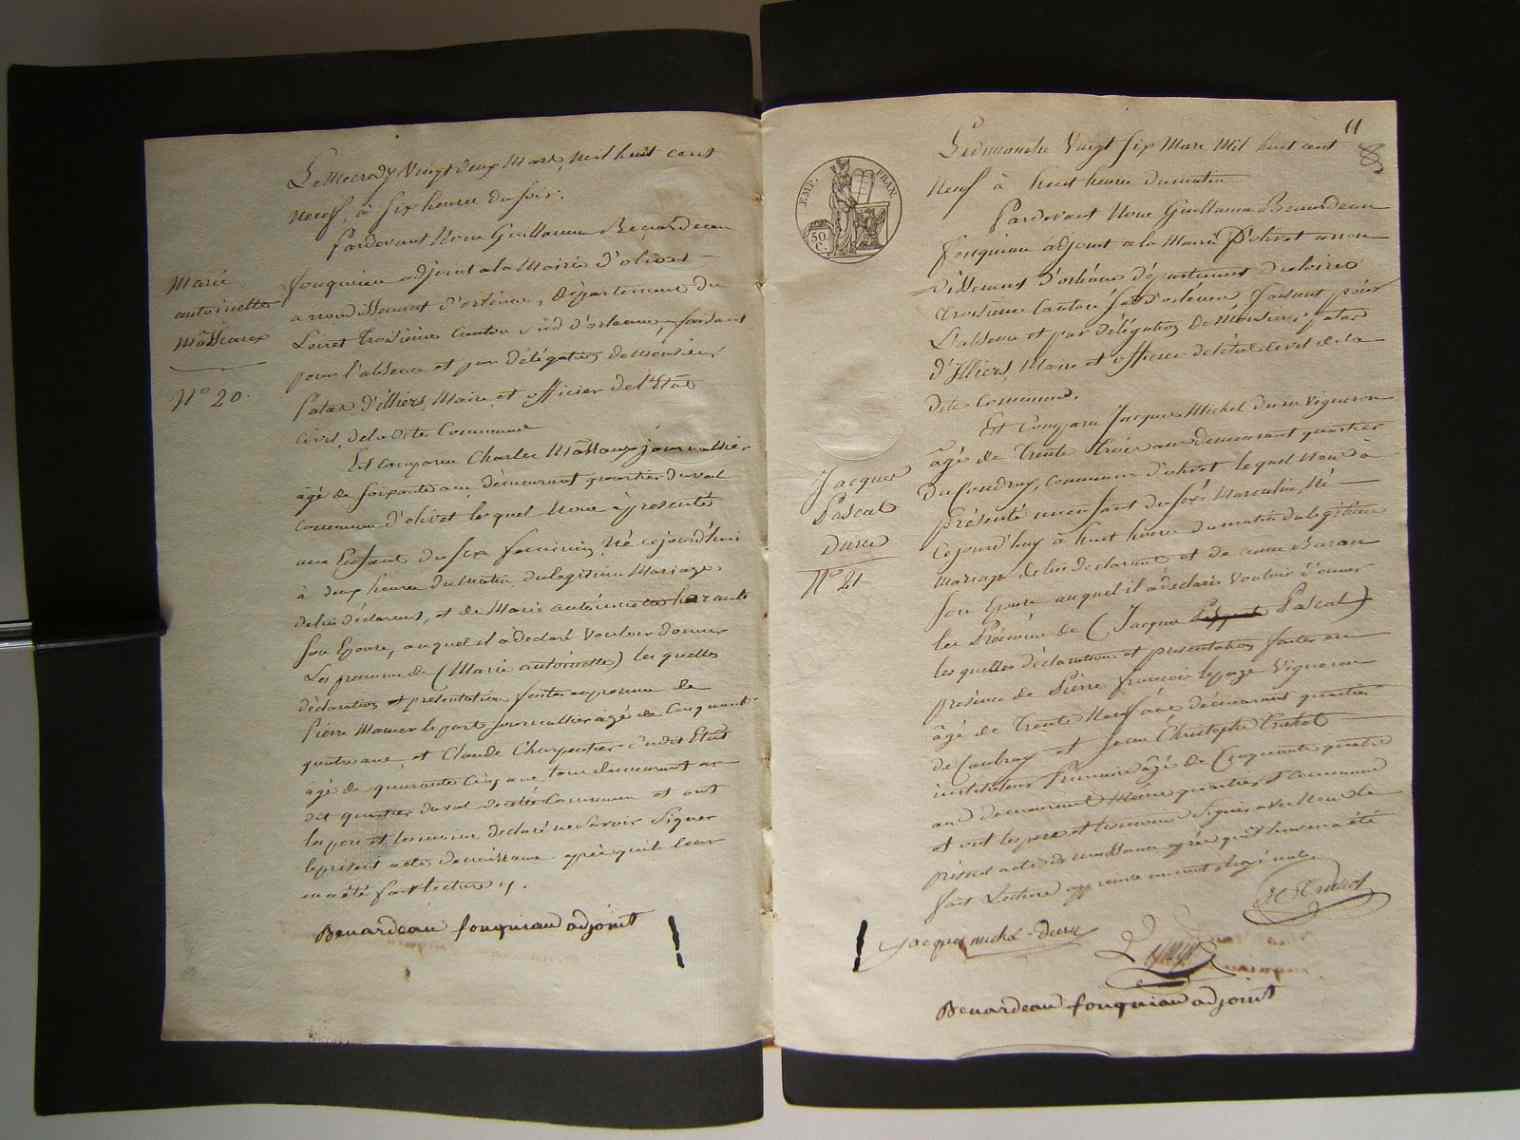 Le Mecredy Vingt deux Mars, mil huit cent
Neuf, à six heures du soir.
Pardevant Nous Guillaume Beuardeau
fouquiau adjoint à la Mairie d'olivet
arrondissement d'orléans, Département du
Loiret Troisième Canton sud d'orleans, faisant
pour l'absence et par délégation de Monsieur
Patas D'illiers, Maire, et officier de l'Etat
Civil, de la dite Commune
Est comparu Charles Massaux journallier
âgé de soixante ans, demeurant quartier du val
commune d'olivet lequel Nous à présenté
une Enfant du sex feminin, Né cejourd'hui
à deux heures du Matin du legitime Mariage
de lui déclarant, et de Marie antoinette
son Epouse, auquel il à declaré Vouloir donner
Les prenoms de (Marie antoinette) les quelles
déclaration et présentation faites en presence de
Pierre journallier âgé de Cinquante
quatre ans, et Claude Charpentier
âgé de quarante Cinq ans, tous demeurant au
dit quartier du val de cette Commune et ont
les pere et temoins declaré ne savoir signer
le présent acte de naissance après qu'il leur
en a été fait lecture
Marie
antoinette
Massaux
Nº 20.
Beuardeau fouquiau adjoint
11
EMP. FRAN.
50 C.
Le dimanche Vingt six Mars Mil huit cent
Neuf à huit heures du matin
Pardevant Nous Guillaume Beuardeau
fouquiau adjoint à la Mairie D'olivet arron
dissement D'orléans département du loiret
troisième Canton sud d'orléans, faisant pour
L'absence et par délégation de Monsieur patas
d'Illiers, Maire et officier de l'état Civil de la
dite Commune.
Est Comparu Jacques Michel Duru Vigneron
âgé de Trente trois ans demeurant quartier
Du Coudray, commune d'olivet lequel Nous à
présenté un enfant du sexe Masculin, Né
Cejourd'huy à huit heures du matin du légitime
mariage de lui declarant et de
son Epouse auquel il à declaré Vouloir donner
les Prénoms de (Jacques Pascal)
les quelles déclaration et présentation faites en
présence de Pierre françois lepage Vigneron
âgé de Trente Neuf ans demeurant quartier
de Caubray et jean Christophe Trutet
instituteur primaire âgé de Cinquante quatre
ans demeurant Même quartier et commune
et ont les pere et temoins signé avec Nous le
présent acte de naissance après qu'il leur en a été
fait Lecture
Jacques
Pascal
Duru
Nº 21
Jacque miché Duru
Beuardeau fouquiau adjoint